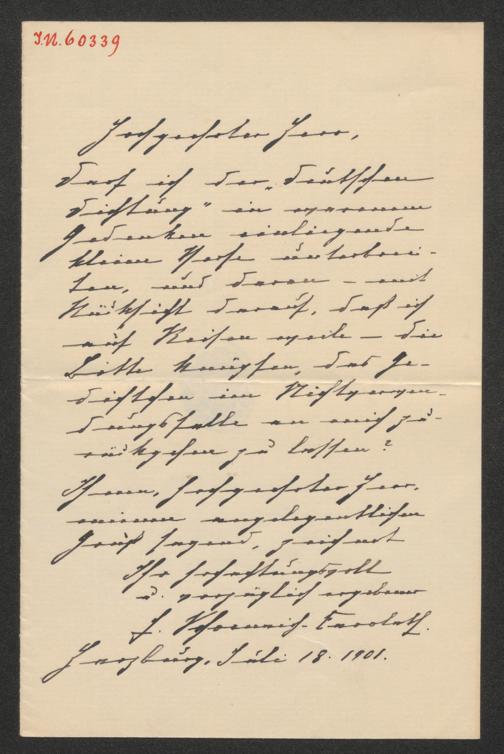 J.N. 60339
Hochgeehrter Herr,
Darf ich der „Deutschen
Dichtung" in warmem
Gedenken einliegende
kleine Verse unterbrei-
ten, und daran – mit
Rücksicht darauf, daß ich
auf Reisen weile – die
Bitte knüpfen, das Ge-
dichtchen im Nichtverwen-
dungsfalle an mich zu-
rückgehen zu lassen?
Ihnen, hochgeehrter Herr,
meinen angelegentlichen
Gruß sagend, zeichnet
Ihr hochachtungsvoll
u. vorzüglich ergebener
Schoenaich-Carolath.
Harzburg, Juli 18. 1901.